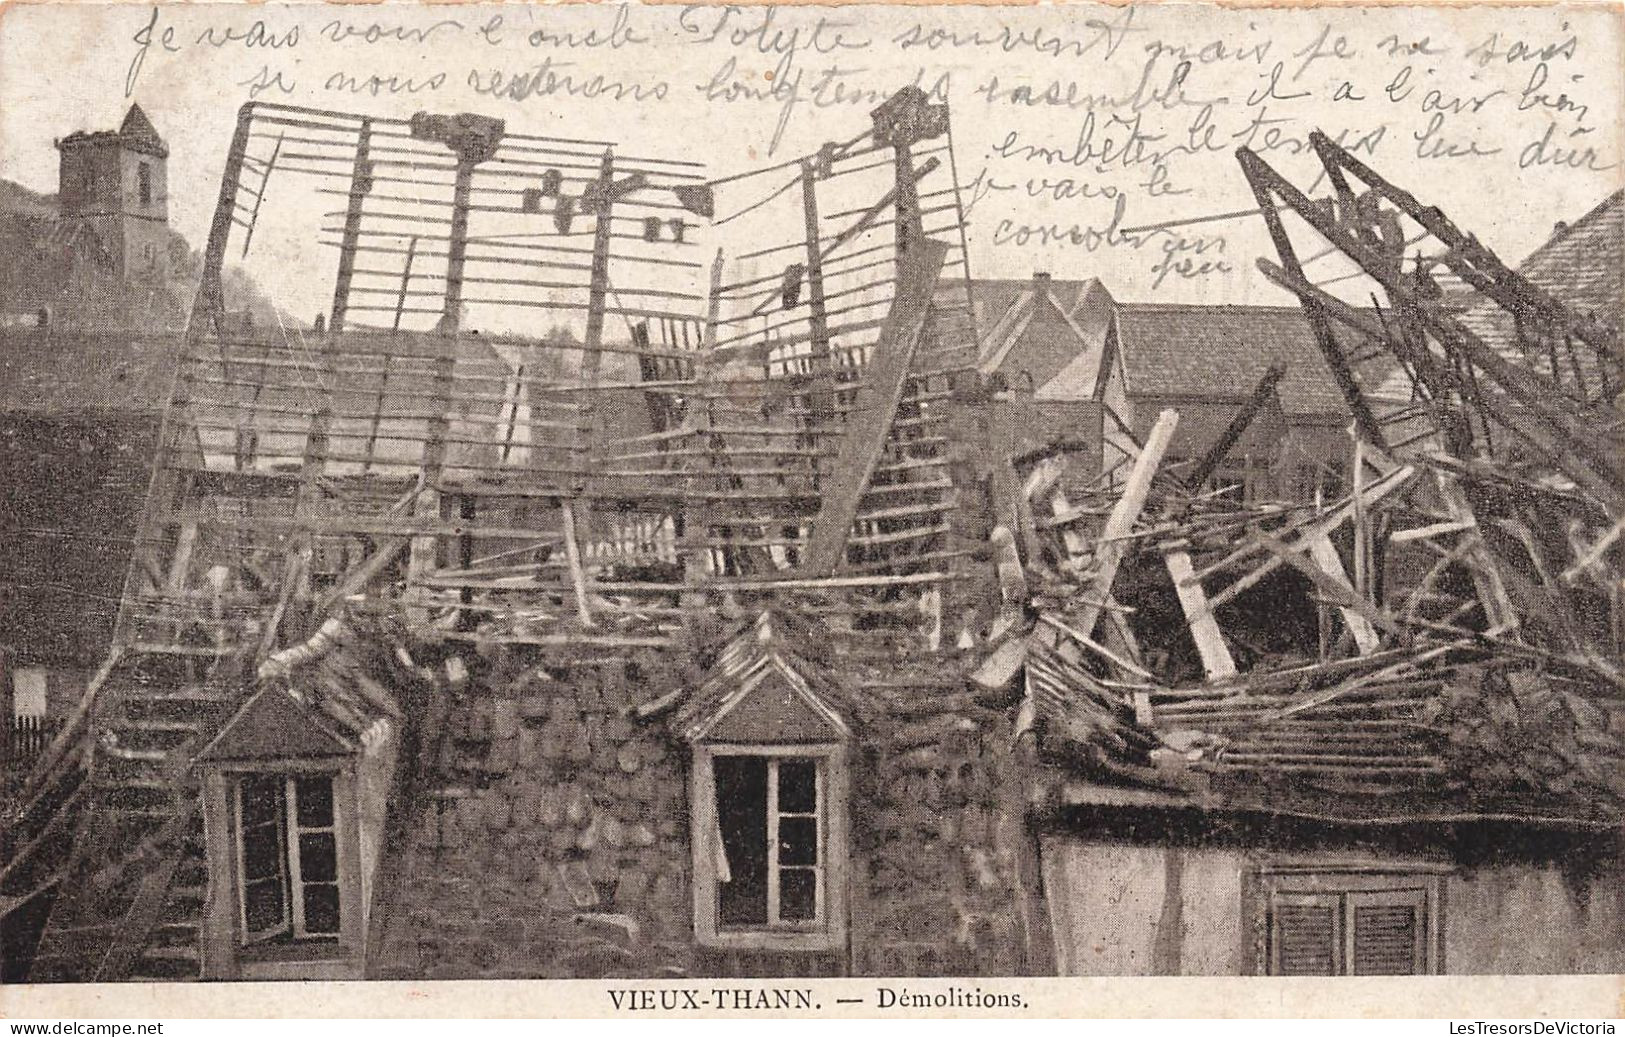 Je vais voir l'oncle Polyte souvent mais je ne sais
si nous resterons longtemps ensemble il a l'air bien
embêter le temps lui dûr
je vais le
consoler un
peu
VIEUX-THANN. — Démolitions.
LesTresorsDeVictoria
https://www.delcampe.net